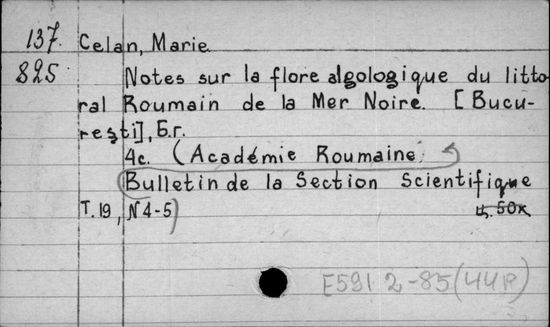 137. Celan, Marie.
825 Notes sur la flore algologique du litto-
ral Roumain de la Mer Noire. [Bucu-
reşti], Б.г.
4с. (Académie Roumaine.
Bulletin de la Section Scientifique
T.19, N4-5)
ц. 50к
E591 2-85(44P)